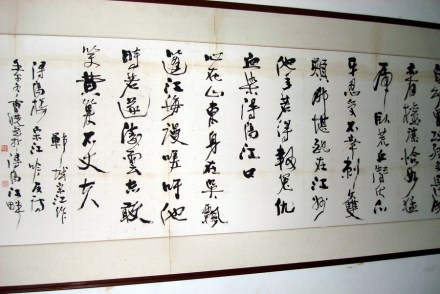 有權謀恰如猛
虎臥荒丘潛伏爪
牙忍受不幸刺雙
頰那堪配在江州
他年若得報冤仇
血染潯陽江口
心在山東身在吳飄
蓬江海謾嗟吁他
時若遂凌雲志敢
笑黃巢不丈夫
鄆城宋江作
潯陽樓宋江吟反詩
壬午於潯陽江畔